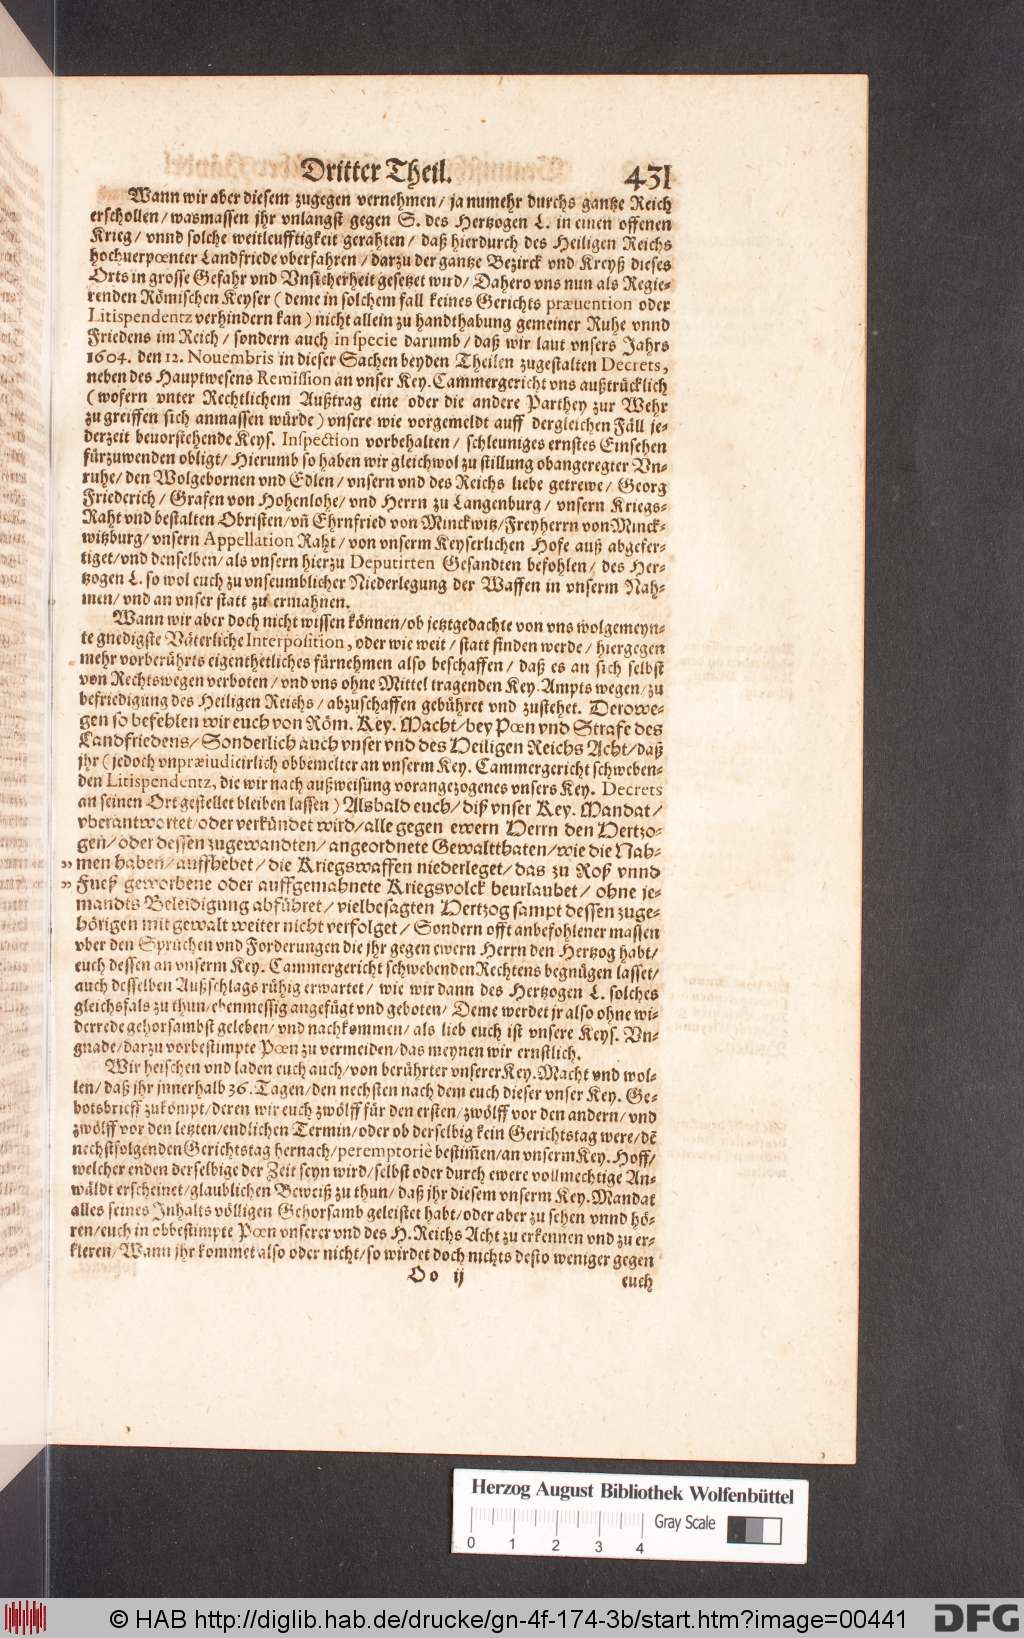 Dritter Theil. 431
Wann wir aber diesem zugegen vernehmen/ ja numehr durchs gantze Reich
erschollen/ wasmassen jhr vnlangst gegen S. des Hertzogen L. in einen offenen
Krieg/ vnnd solche weitleufftigkeit gerahten/ daß hierdurch des Heiligen Reichs
hochuerpœnter Landfriede vberfahren/ darzu der gantze Bezirck vnd Kreyß dieses
Orts in grosse Gefahr vnd Vnsicherheit gesetzet wird/ Dahero vns nun als Regie-
renden Römischen Keyser ( deme in solchem fall keines Gerichts præuention oder
Litispendentz verhindern kan ) nicht allein zu handthabung gemeiner Ruhe vnnd
Friedens im Reich/ sondern auch in specie darumb/ daß wir laut vnsers Jahrs
1604. den 12. Nouembris in dieser Sachen beyden Theilen zugestalten Decrets,
neben des Hauptwesens Remission an vnser Key. Cammergericht vns außtrücklich
( wofern vnter Rechtlichem Außtrag eine oder die andere Parthey zur Wehr
zu greiffen sich anmassen würde ) vnsere wie vorgemeldt auff dergleichen Fäll je-
derzeit beuorstehende Keys. Inspection vorbehalten/ schleuniges ernstes Einsehen
fürzuwenden obligt/ Hierumb so haben wir gleichwol zu stillung obangeregter Vn-
ruhe/ den Wolgebornen vnd Edlen/ vnsern vnd des Reichs liebe getrewe/ Georg
Friederich/ Grafen von Hohenlohe/ vnd Herrn zu Langenburg/ vnsern Kriegs-
Raht vnd bestalten Obristen/ vñ Ehrnfried von Minckwitz/ Freyherrn von Minck-
witzburg/ vnsern Appellation Raht/ von vnserm Keyserlichen Hofe auß abgefer-
tiget/ vnd denselben/ als vnsern hierzu Deputirten Gesandten befohlen/ des Her-
tzogen L. so wol euch zu vnseumblicher Niederlegung der Waffen in vnserm Nah-
men/ vnd an vnser statt zu ermahnen.
Wann wir aber doch nicht wissen können/ ob jetztgedachte von vns wolgemeyn-
te gnedigste Väterliche Interposition, oder wie weit/ statt finden werde/ hiergegen
mehr vorberührts eigenthetliches fürnehmen also beschaffen/ daß es an sich selbst
von Rechtswegen verboten/ vnd vns ohne Mittel tragenden Key. Ampts wegen/ zu
befriedigung des Heiligen Reichs/ abzuschaffen gebühret vnd zustehet. Derowe-
gen so befehlen wir euch von Röm. Key. Macht/ bey Pœn vnd Strafe des
Landfriedens/ Sonderlich auch vnser vnd des Heiligen Reichs Acht/ daß
jhr ( jedoch vnpræiudicirlich obbemelter an vnserm Key. Cammergericht schweben-
den Litispendentz, die wir nach außweisung vorangezogenes vnsers Key. Decrets
an seinen Ort gestellet bleiben lassen ) Alsbald euch/ diß vnser Key. Mandat/
vberantwortet/ oder verkündet wird/ alle gegen ewern Herrn den Hertzo-
gen/ oder dessen zugewandten/ angeordnete Gewaltthaten/ wie die Nah-
„ men haben/ auffhebet/ die Kriegswaffen niederleget/ das zu Roß vnnd
„ Fueß geworbene oder auffgemahnete Kriegsvolck beurlaubet/ ohne je-
mandts Beleidigung abführet/ vielbesagten Hertzog sampt dessen zuge-
hörigen mit gewalt weiter nicht verfolget/ Sondern offt anbefohlener massen
vber den Sprüchen vnd Forderungen die jhr gegen ewern Herrn den Hertzog habt/
euch dessen an vnserm Key. Cammergericht schwebenden Rechtens begnügen lasset/
auch desselben Außschlags rühig erwartet/ wie wir dann des Hertzogen L. solches
gleichsfals zu thun/ ebenmessig angefügt vnd geboten/ Deme werdet jr also ohne wi-
derrede gehorsambst geleben/ vnd nachkommen/ als lieb euch ist vnsere Keys. Vn-
gnade/ darzu vorbestimpte Pœn zu vermeiden/ das meynen wir ernstlich.
Wir heischen vnd laden euch auch/ von berührter vnserer Key. Macht vnd wol-
len/ daß jhr jnnerhalb 36. Tagen/ den nechsten nach dem euch dieser vnser Key. Ge-
botsbrieff zukompt/ deren wir euch zwölff für den ersten/ zwölff vor den andern/ vnd
zwölff vor den letzten/ endlichen Termin/ oder ob derselbig kein Gerichtstag were/ dē
nechstfolgenden Gerichtstag hernach/ peremptoriè bestim̃en/ an vnserm Key. Hoff/
welcher enden derselbige der Zeit seyn wird/ selbst oder durch ewere vollmechtige An-
wäldt erscheinet/ glaublichen Beweiß zu thun/ daß jhr diesem vnserm Key. Mandat
alles seines Inhalts völligen Gehorsamb geleistet habt/ oder aber zu sehen vnnd hö-
ren/ euch in obbestimpte Pœn vnserer vnd des H. Reichs Acht zu erkennen vnd zu er-
kleren/ Wann jhr kommet also oder nicht/ so wirdet doch nichts desto weniger gegen
Oo ij euch
Herzog August Bibliothek Wolfenbüttel
Gray Scale
0 1 2 3 4
© HAB http://diglib.hab.de/drucke/gn-4f-174-3b/start.htm?image=00441 DFG